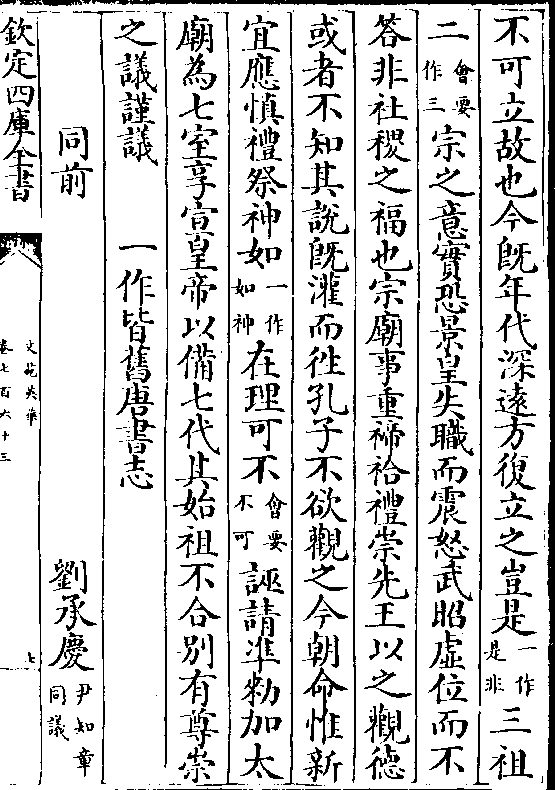 不可立故也今旣年代深遠方復立之豈是一作是非三祖
二會要作三宗之意實恐景皇失職而震怒武昭虛位而不
答非社稷之福也宗廟事重禘祫禮崇先王以之觀德
或者不知其說旣灌而徃孔子不欲觀之今朝命惟新
宜應慎禮祭神如一作如神在理可不會要不可誣請准勑加太
廟為七室享宣皇帝以備七代其始祖不合別有尊崇
之議謹議 一作皆舊唐書志
同前 劉承慶尹知章同議
欽定四庫全書
文苑英華
卷七百六十三
七